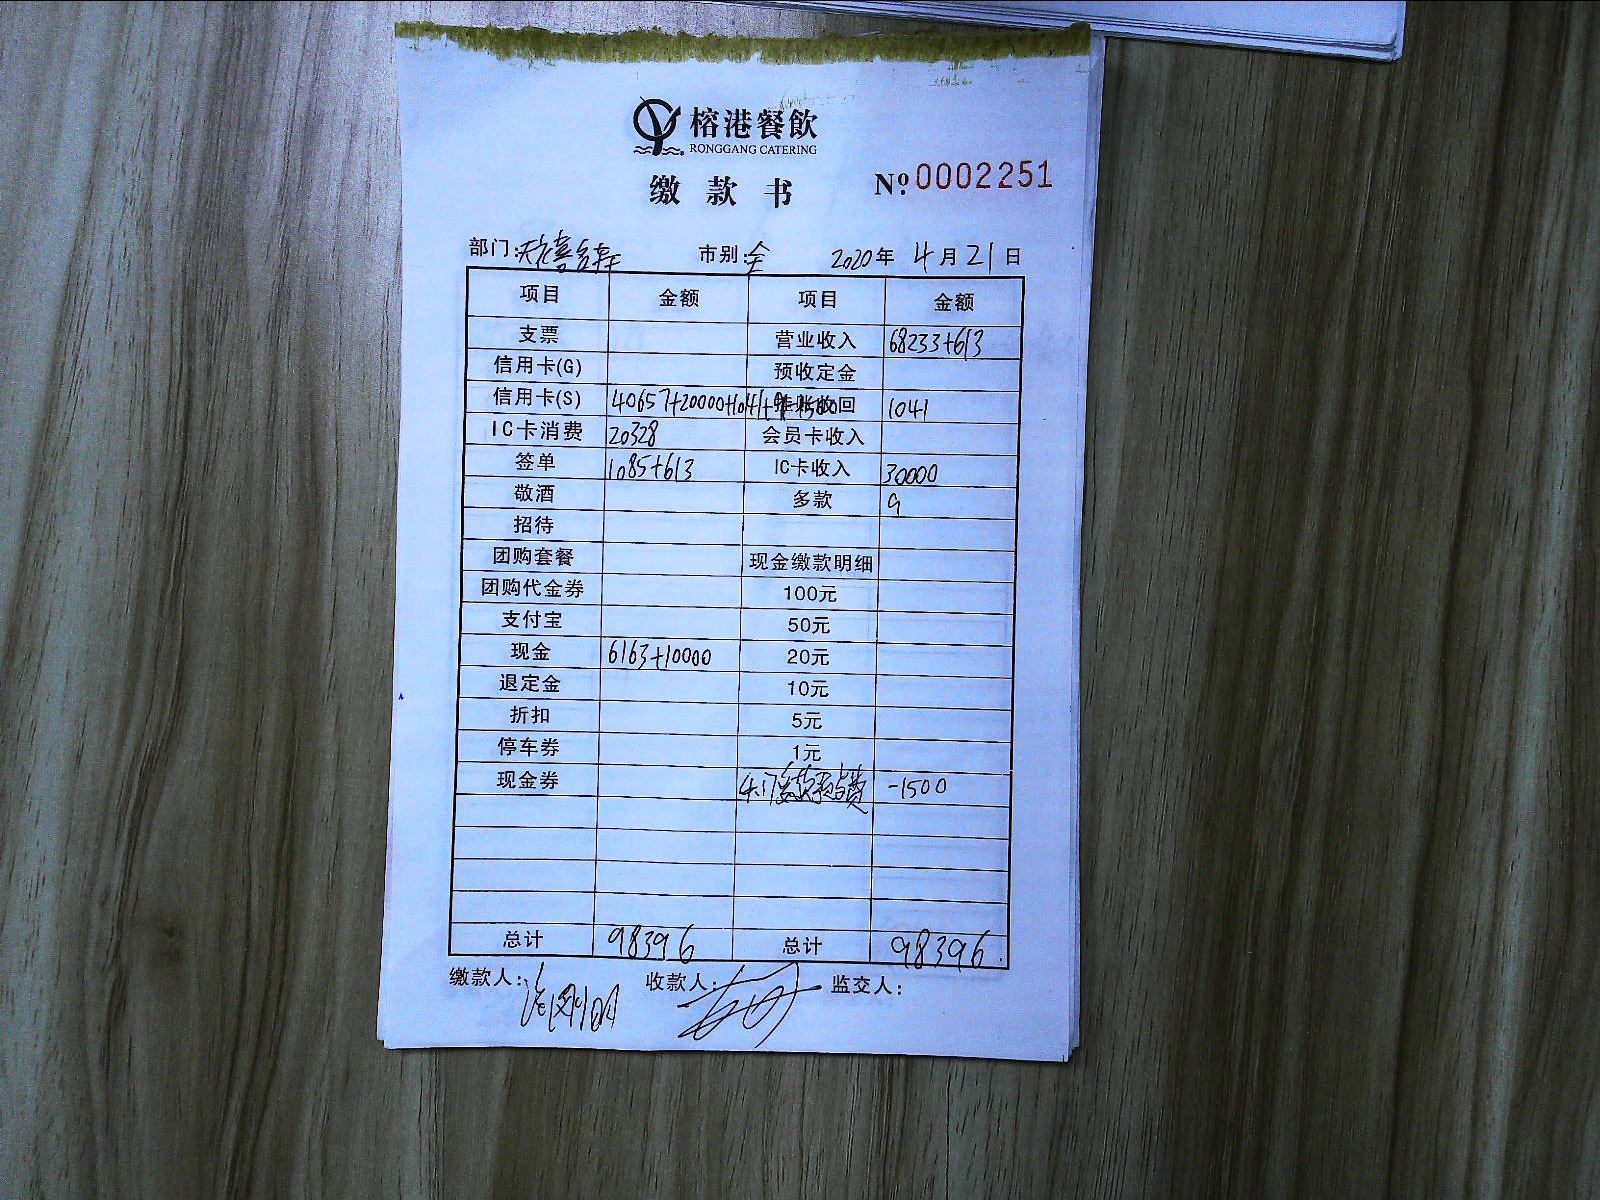 榕港餐飲
RONGGANG CATERING
缴款书 No.0002251
部门: 市别:全 2020年4月21日
项目 金额 项目 金额
支票 营业收入 68233+613
信用卡(G) 预收定金
信用卡(S) 40657+20000+1041+9-1500 挂账收回 1041
IC卡消费 20328 会员卡收入
签单 1085+613 IC卡收入 30000
敬酒 多款 9
招待
团购套餐 现金缴款明细
团购代金券 100元
支付宝 50元
现金 6163+10000 20元
退定金 10元
折扣 5元
停车券 1元
现金券 4.17 费 -1500
总计 98396 总计 98396.
缴款人: 收款人: 监交人: